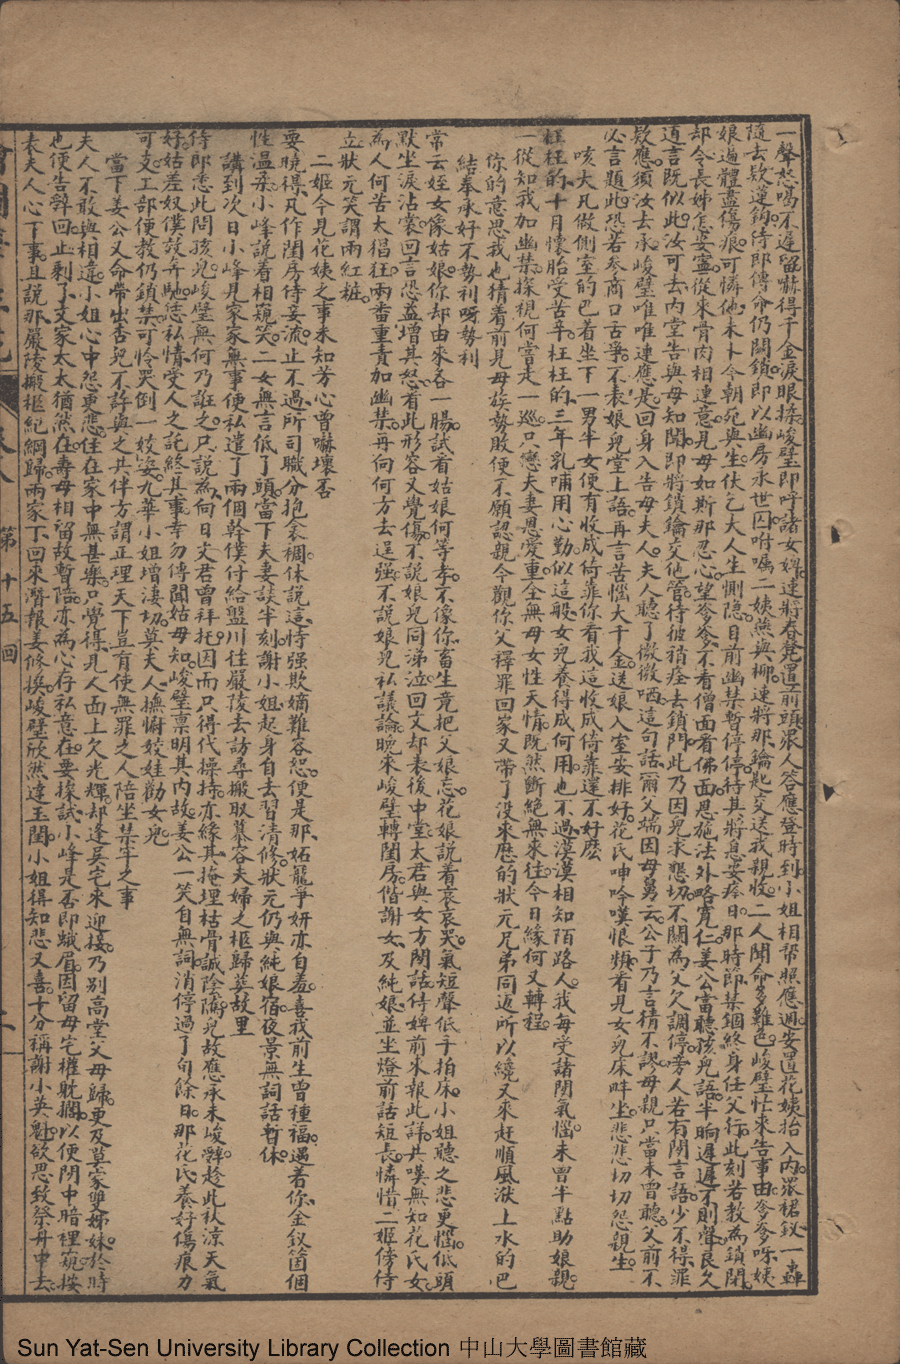 一聲怒喝不遲留嚇得千金淚眼揉峻璧即呼諸女婢速將春凳置前頭衆人答應登時到小姐相帮照應週安置花姨抬入內衆裙釵一轟
隨去欵蓮鈎侍郎傳命仍關鎖即以幽房永世囚咐嘱二姨熊與柳速將那鑰匙交送我親收二人聞命多難色峻璧忙來告事由爹爹呀姨
娘遍體盡傷痕可憐他未卜今朝死與生伏乞大人生惻隐目前幽禁暫停停待其將息安痊日那時節禁錮終身任父行此刻若教為鎖閉
却令長姊怎安寧從來骨肉相連意見母如斯那忍心望爹爹不看僧面看佛面恩施法外略寬仁姜公當聽孩兒語半晌遲遲不則聲良久
道言既似此汝可去內堂告與母知聞即將鎖鑰交他管待彼稍痊去鎖門此乃因兒求懇切不關為父欠調停旁人若有閒言語少不得罪
欵應須汝去承峻璧唯唯連應是回身入告母夫人夫人聽了微微哂這句話爾父端因母舅云公子乃言猜不謬母親只當未曾聽父前不
必言題此恐若參商口舌爭不表娘兒堂上語再言苦惱大千金送娘入室安排好花氏呻吟嘆恨頻看見女兒床畔坐悲悲切切怨親生
咳大凡做側室的巴着坐下一男半女便有收成倚靠你看我這收成倚靠還不好麽
枉枉的十月懷胎受苦辛枉枉的三年乳哺用心勤似這般女兒養得成何用也不過漠漠相知陌路人我每受諸閒氣惱未曾半點助娘親
一從知我加幽禁探視何嘗走一巡只戀夫妻恩愛重全無母女性天情既然斷絕無來往今日緣何又轉程
你的意思我也猜着前見母旋勢敗便不願認親今觀你父釋罪回家又帶了沒來歷的狀元兄弟同返所以繞又來赶順風漲上水的巴
結奉承好不勢利呀勢利
常云姪女像姑娘你却由來各一腸試看姑娘何等孝不像你畜生竟把父娘忘花娘說着哀哀哭氣短聲低手拍床小姐聽之悲更惱低頭
默坐淚沾裳回言恐益增其怒看此形容又覺傷不說娘兒同涕泣回文却表後中堂太君與女方閒話侍婢前來報此詳共嘆無如花氏女
為人何苦太猖狂兩畨重責加幽禁再向何方去逞強不說娘兒私議論晚來峻璧轉閨房偕謝女及純娘並坐燈前話短長憐惜二姬傍侍
立狀元笑謂兩紅粧
二姬今見花姨之事未知芳心曾嚇壞否
要曉得凡作閨房侍妾流止不過所司職分抱衾裯休説這恃强欺嫡難容恕便是那妬寵爭妍亦自羞喜我前生曾種福遇着你金釵箇個
性温柔小峰說着相窺笑二女無言低了頭當下夫妻談半刻謝小姐起身自去習清修狀元仍與純娘宿夜景無詞話暫休
講到次日小峰見家家無事便私遣了兩個幹僕付給盤川往嚴陵去訪尋搬取慕容夫婦之柩歸葬故里
侍郎悉此問孩兒峻璧無何乃誑之只說為向日文君曾拜托因而只得代操持亦緣其掩埋枯骨誠陰隲兒故應承未峻辭趁此秋涼天氣
好姑差奴僕效奔馳恁私情受人之託終其事幸勿傳聞姑母知峻璧禀明其內故姜公一笑自無詞消停過了旬餘日那花氏養好傷痕力
可支工部便教仍鎖禁可怜哭倒一姣姿九華小姐增淒切莫夫人撫掏姣娃勸女兒
當下姜公又命帶出杏兒不許與之共伴方謂正理天下豈有使無罪之人陪坐禁牢之事
夫人不敢與相違小姐心中怨更悲住在家中無甚樂只覺得見人面上欠光輝却逢吳宅來迎接乃别高堂父母歸更及莫家雙姊妹於時
也便告辭回止剩了文家太太猶然在壽母相留故暫陪亦為心存私意在要探試小峰是否即蛾眉因留母宅權耽擱以便閒中暗裡窺按
表夫人心下事且說那嚴陵搬柩紀綱歸兩家丁回來潛報姜修撰峻璧欣然達玉閨小姐得知悲又喜十分稱謝小英魁欲思致祭舟中去
第十五回
Sun Yat-Sen University Library Collection 中山大學圖書館藏